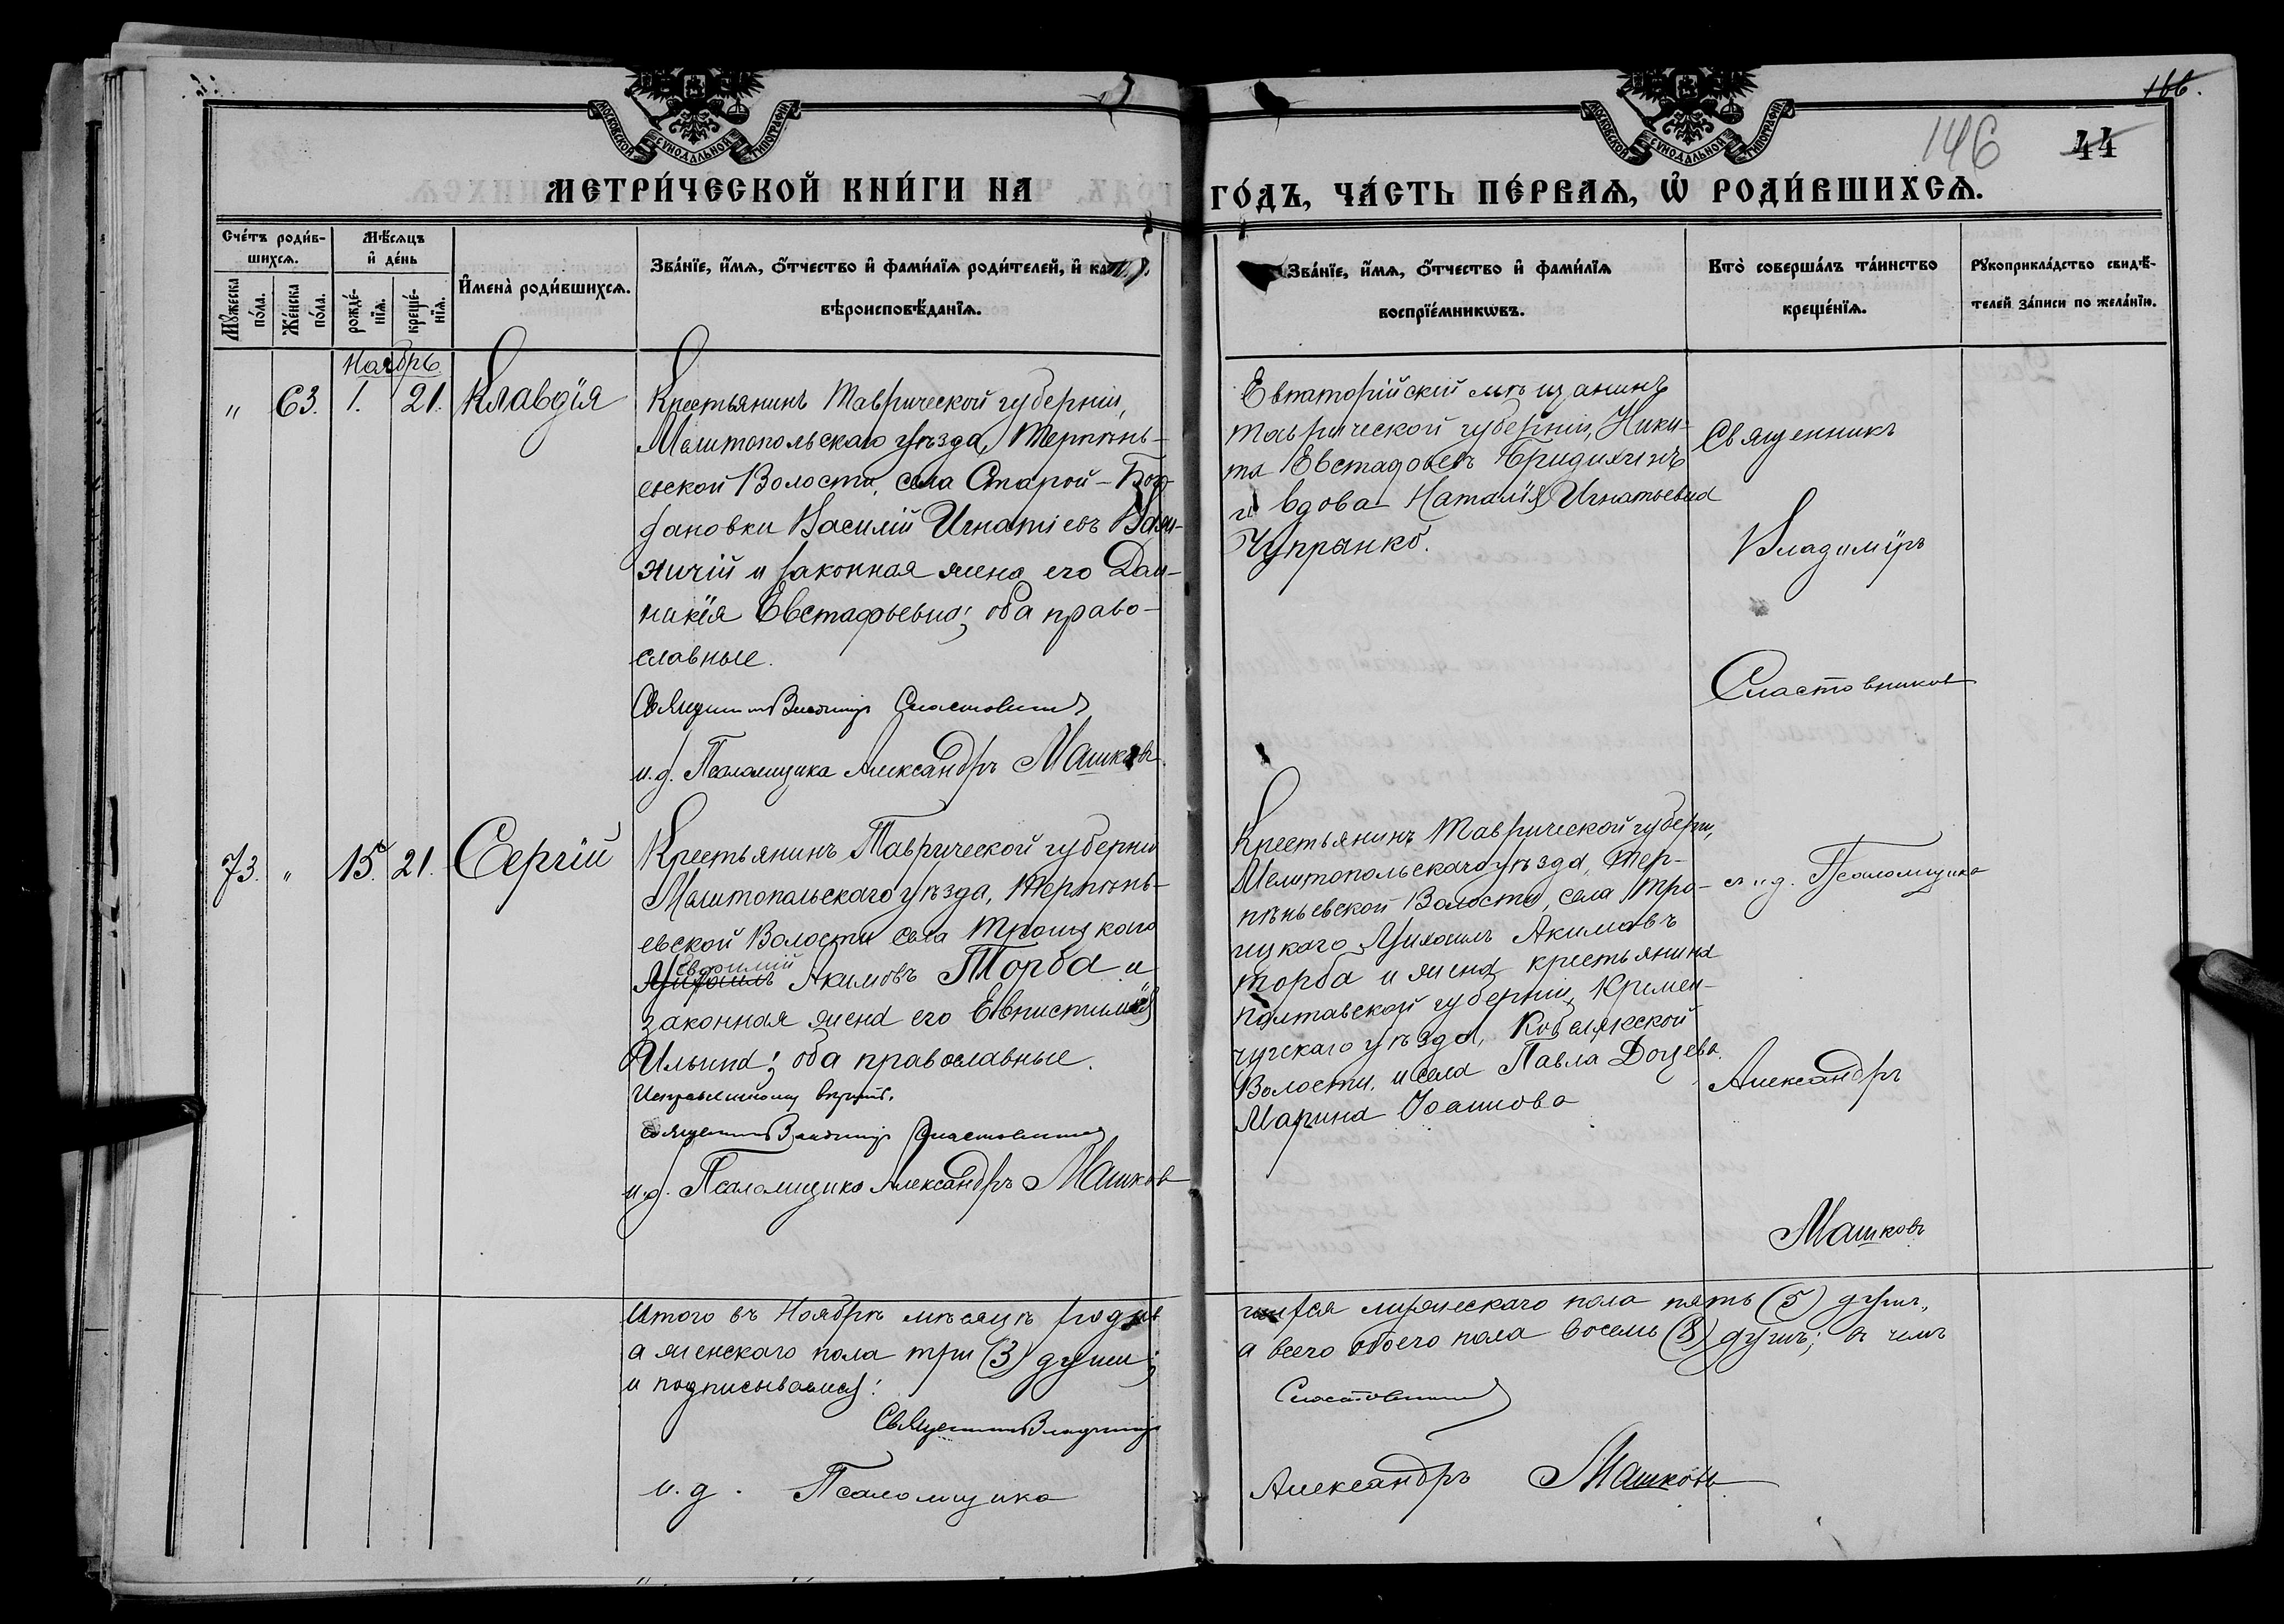 МОСКОВСКОЙ СѴНОДАЛЬНОЙ ТИПОГРАФІИ
МОСКОВСКОЙ СѴНОДАЛЬНОЙ ТИПОГРАФІИ
166.
146
44
МЕТРИ́ЧЕСКОЙ КНИ́ГИ НА
ГО́ДЪ, ЧА́СТЬ ПЕ́РВАѦ, Ѡ҆ РОДИ́ВШИХСѦ.
Сче́тъ роди́в-
шихсѧ.
Мѣ́сѧцъ
и҆ де́нь
Мꙋ́жеска
по́ла.
Же́нска
по́ла.
рожде́-
нїѧ.
креще́-
нїѧ.
И҆мена̀ роди́вшихсѧ.
Зва́нїе, и҆́мѧ, ѻ҆́тчество и҆ фами́лїѧ роди́телей, и҆
вѣроисповѣ́данїѧ.
Зва́нїе, и҆́мѧ, ѻ҆́тчество и҆ фами́лїѧ
воспрїе́мникѡвъ.
Кто̀ соверша́лъ та́инство
креще́нїѧ.
Рꙋкоприкла́дство свидѣ́-
телей за́писи по жела́нїю.
Ноябрь
" 63. 1. 21. Клавдїя
Крестьянинъ Таврической губерніи,
Мелитопольскаго уѣзда, Терпѣнь-
евской Волости, села Старой-Бог-
дановки Василій Игнатіевъ
и законная жена его Дом-
никїя Евстафьевна; оба право-
славные.
Священникъ Владимиръ Сластовниковъ
и.д. Псаломщика Александръ Машковъ
Евпаторійскій мѣщанинъ
Таврической губерніи, Ники-
та Евстафьевъ
и вдова Наталїя Игнатьевна
Чупрянко.
Священникъ
Владимїръ
Сластовниковъ
73. " 15. 21. Сергїй
Крестьянинъ Таврической губерніи
Мелитопольскаго уѣзда, Терпѣнь-
евской Волости села Троицкаго
Евфимій
Акимовъ Торба и
законная жена его Евпистимія
Ильина; оба православные.
Исправленному вѣрить.
Священникъ Владимиръ Сластовниковъ
и.д. Псаломщика Александръ Машковъ
Крестьянинъ Таврической губерн,
Мелитопольскаго уѣзда, Тер-
пѣньевской Волости, села Тро-
ицкаго Михаилъ Акимовъ
Торба и жена крестьянина
Полтавской губерніи, Кремен-
чугскаго уѣзда, Кобелякской
Волости, и села Павла Доцева
Марина Іоаннова
съ и.д. Псаломщика
Александръ
Машковъ
Итого въ Ноябрѣ мѣсяцѣ родив
шихся мужескаго пола пять (5) душъ,
а женскаго пола три (3) души;
а всего обоего пола восемь (8) душъ; въ чемъ
и подписываемся:
Священникъ Владимиръ
Сластовниковъ
и.д. Псаломщика
Александръ Машковъ